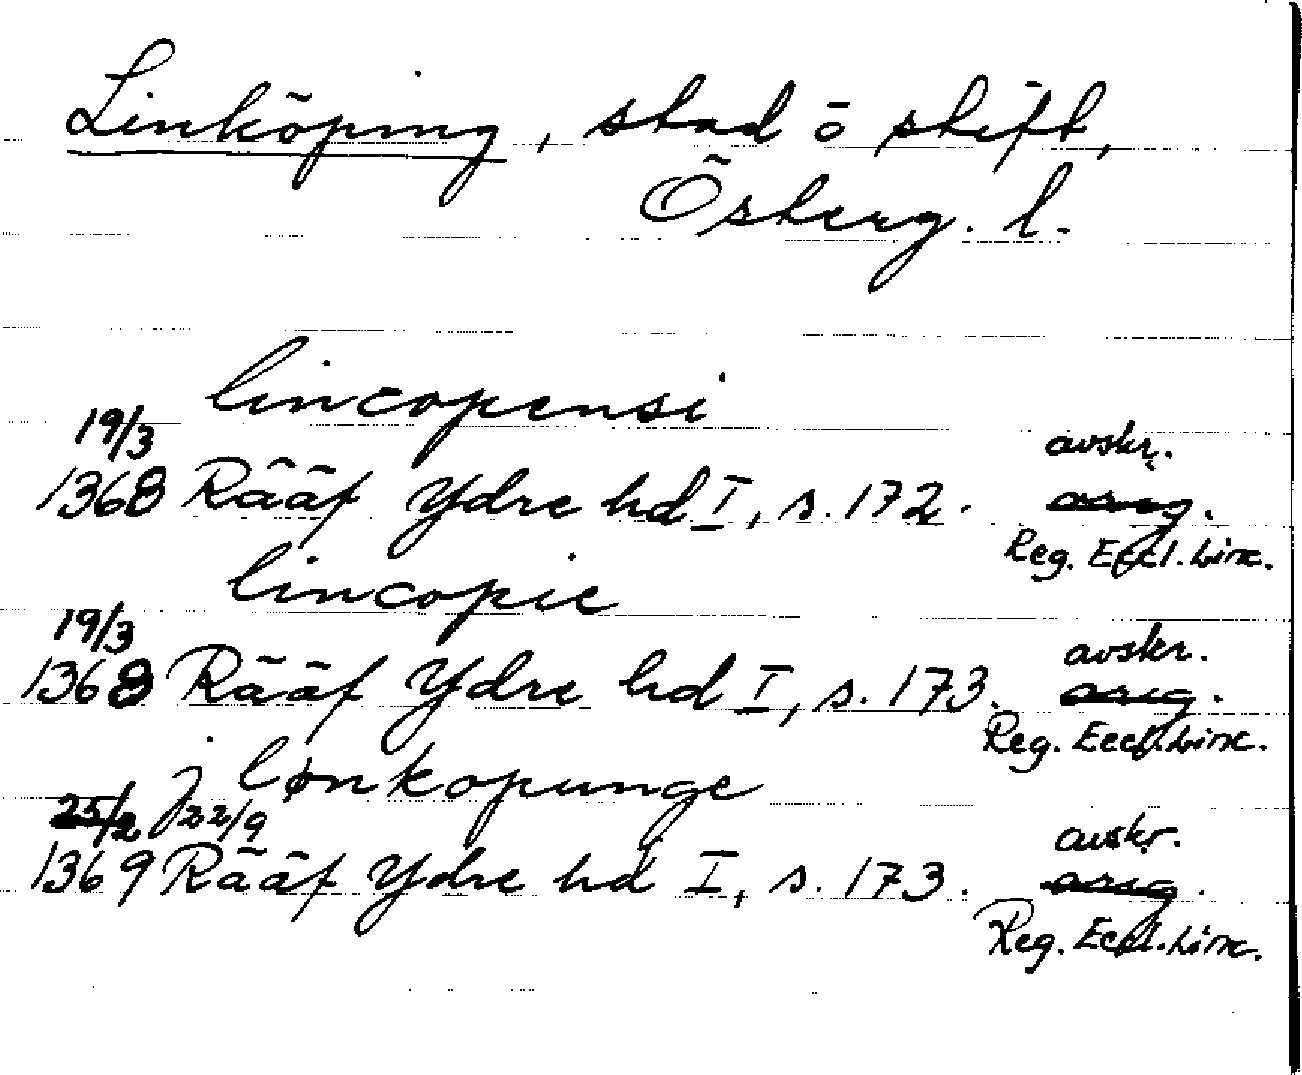 Linköping, stad o stift,
Österg. l.
lincopensi
19/3 avskr.
1368 Rääf Ydre hd I, s. 172. orig.
Reg. Eccl. Linc.
lincopie
19/3 avskr.
1368 Rääf Ydre hd I, s. 173. orig.
Reg. Eccl. Linc.
j lønkopunge
25/2 22/9 avskr.
1369 Rääf Ydre hd I, s. 173. orig.
Reg. Eccl. Linc.